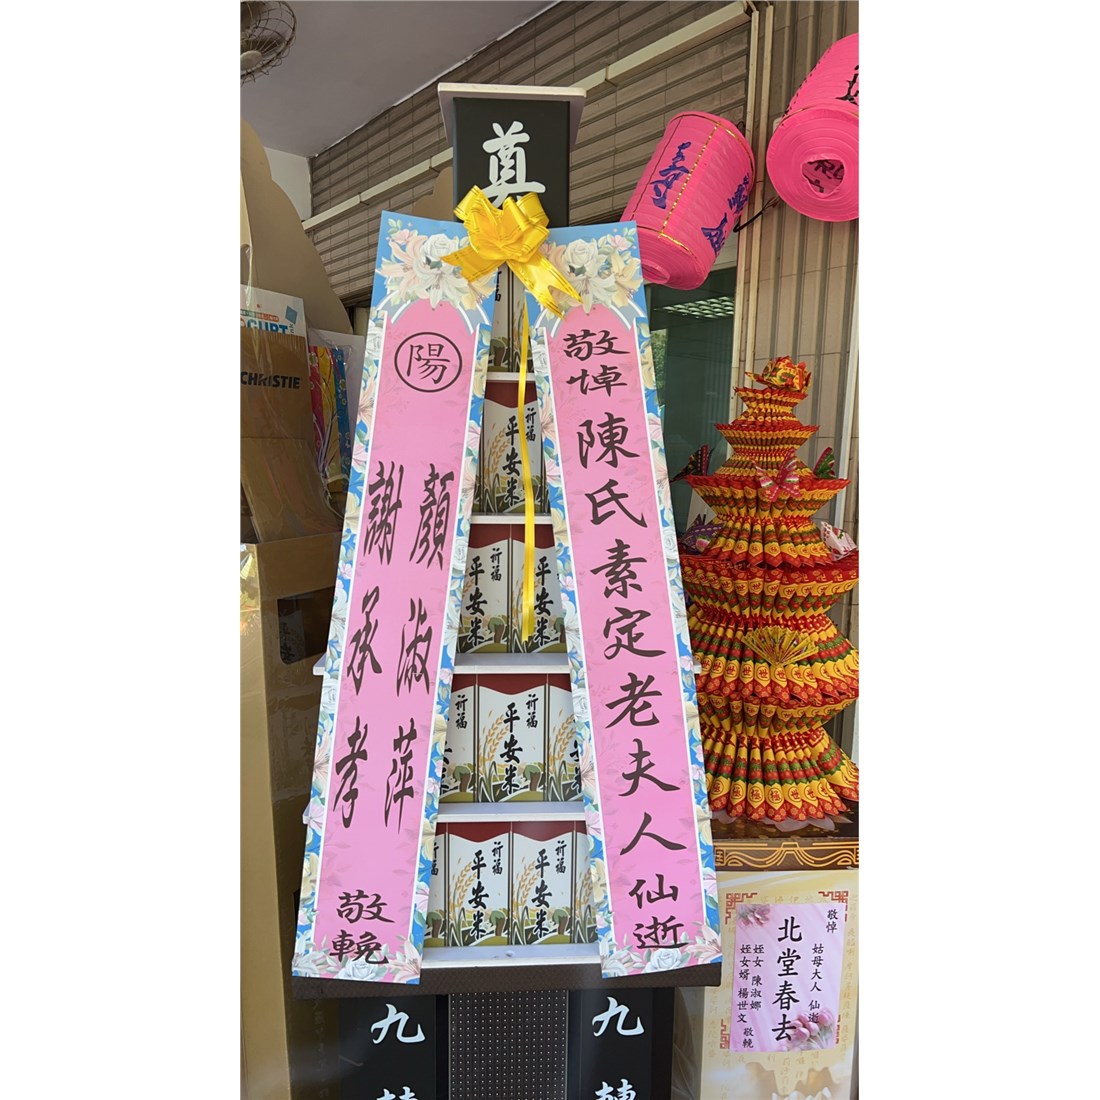 奠
敬悼
陳氏素定老夫人
仙逝
陽
顏淑萍
謝承孝
敬輓
祈福
平安米
祈福
平安米
祈福
平安米
祈福
平安米
祈福
平安米
祈福
平安米
九轉
九轉
敬悼
姑母大人 仙逝
北堂春去
姪女 陳淑娜
姪女婿 楊世文
敬輓
CHRISTIE